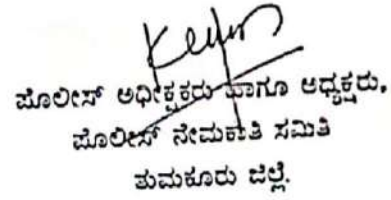 ಪೊಲೀಸ್ ಅಧೀಕ್ಷಕರು ಹಾಗೂ ಅಧ್ಯಕ್ಷರು,
ಪೊಲೀಸ್ ನೇಮಕಾತಿ ಸಮಿತಿ
ತುಮಕೂರು ಜಿಲ್ಲೆ.